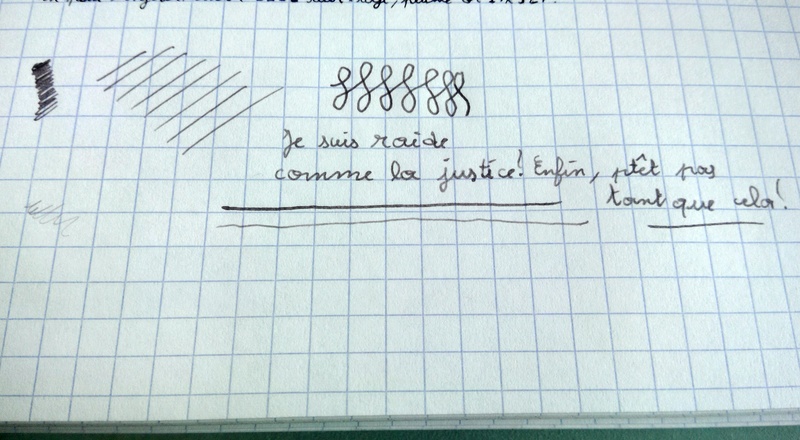 Je suis raide
comme la justice! Enfin, ptêt pas
tant que cela!